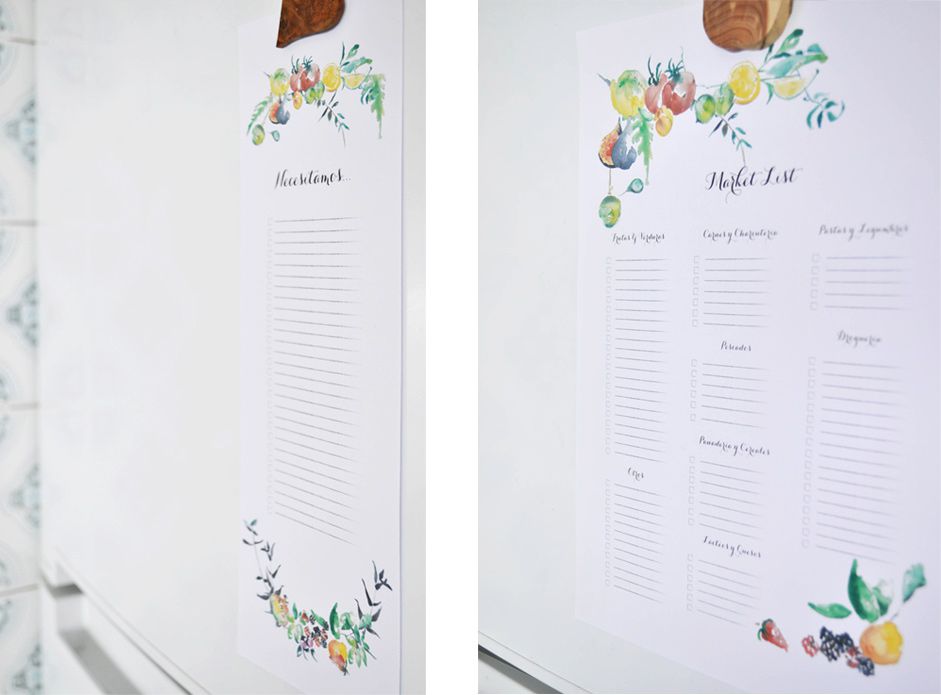 Necesitamos...
Market List
Frutas y Verduras
Carnes y Charcutería
Pastas y Legumbres
Pescados
Droguería
Panadería y Cereales
Otros
Lácteos y Quesos